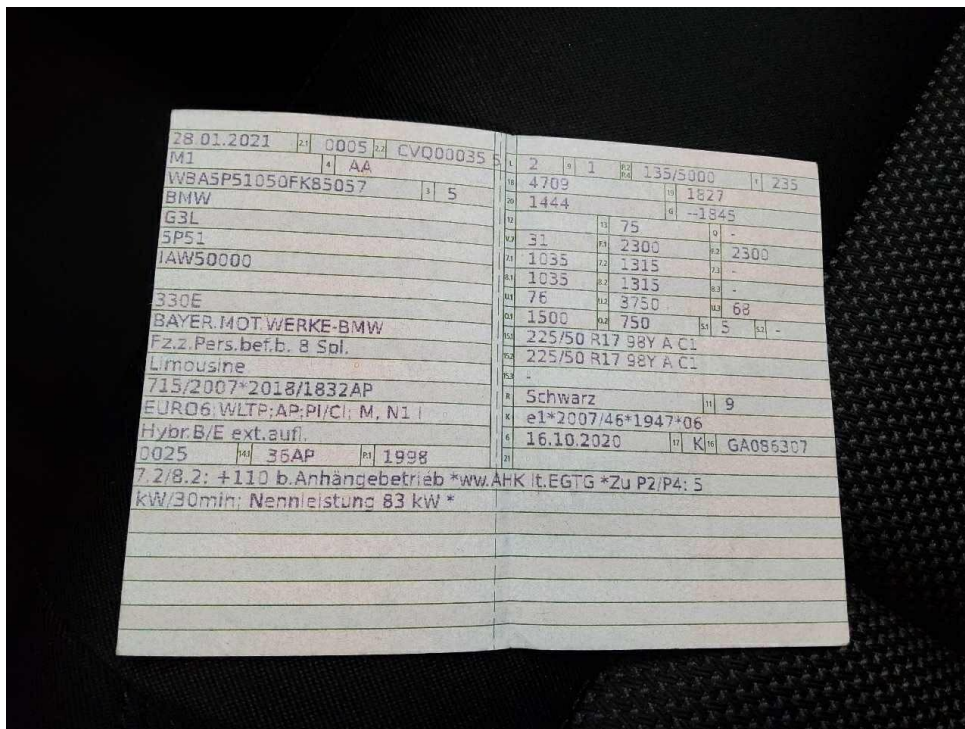 28.01.2021 2.1 0005 2.2 CVQ00035 5
M1 4 AA
WBA5P51050FK85057 3 5
BMW
G3L
5P51
IAW50000
330E
BAYER.MOT.WERKE-BMW
Fz.z.Pers.bef.b. 8 Spl.
Limousine
715/2007*2018/1832AP
EURO6;WLTP;AP;PI/CI; M, N1 I
Hybr.B/E ext.aufl.
0025 14.1 36AP P.1 1998
L 2 9 1 P.2 P.4 135/5000 T 235
18 4709 19 1827
20 1444 G --1845
12 13 75 Q -
V.7 31 F.1 2300 F.2 2300
7.1 1035 7.2 1315 7.3 -
8.1 1035 8.2 1315 8.3 -
U.1 76 U.2 3750 U.3 68
O.1 1500 O.2 750 S.1 5 S.2 -
15.1 225/50 R17 98Y A C1
15.2 225/50 R17 98Y A C1
15.3 -
R Schwarz 11 9
K e1*2007/46*1947*06
6 16.10.2020 17 K 16 GA086307
21
7.2/8.2: +110 b.Anhängebetrieb *ww.AHK lt.EGTG *Zu P2/P4: 5
kW/30min; Nennleistung 83 kW *